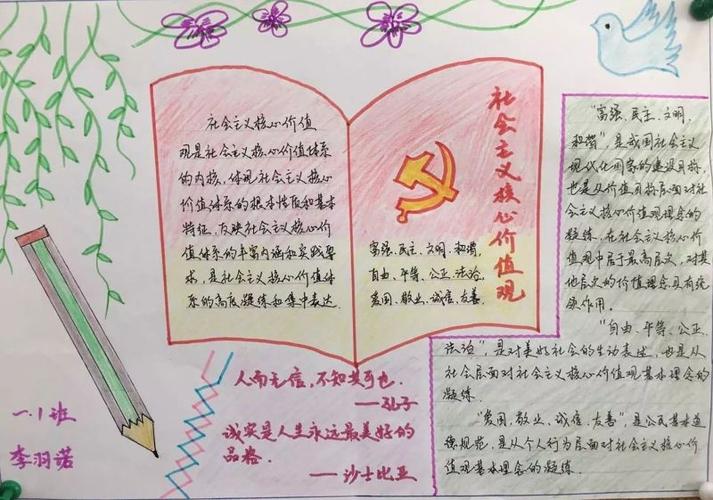 社会主义核心价值
观是社会主义核心价值体系
的内核，体现社会主义核心
价值体系的根本性质和基本
特征，反映社会主义核心价
值体系的丰富内涵和实践要
求，是社会主义核心价值体
系的高度凝练和集中表达.
社会主义核心价值观
富强、民主、文明、和谐，
自由、平等、公正、法治，
爱国、敬业、诚信、友善。
"富强、民主、文明，
和谐"，是我国社会主义
现代化国家的建设目标，
也是从价值目标层面对社
会主义核心价值观理念的
凝练，在社会主义核心价
值观中居于最高层次，对其
他层次的价值理念具有统
领作用。
"自由、平等、公正、
法治"，是对美好社会的生动表述，也是从
社会层面对社会主义核心价值观基本理念的
凝练.
"爱国、敬业、诚信、友善"，是公民基本道
德规范，是从个人行为层面对社会主义核心价
值观基本理念的凝练.
人而无信，不知其可也.
——孔子
诚实是人生永远最美好的
品格.
——沙士比亚
一.1班
李羽诺